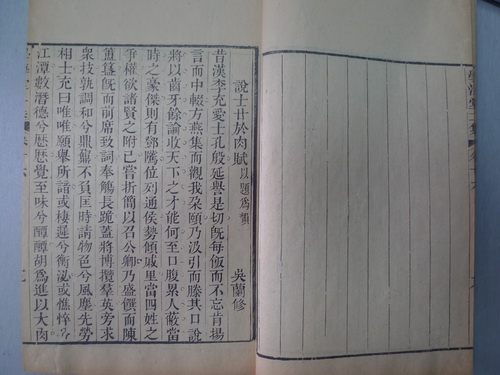 說士甘於肉賦以題為韻
吳蘭修
昔漢李充愛士孔殷延譽是切旣每飯而不忘肯揚
言而中輟方燕集而觀我朶頤乃汲引而滕其口說
將以齒牙餘論收天下之才能何至口腹累人蔽當
時之豪傑則有鄧騭位列通侯勢傾戚里當四姓之
爭權欲諸賢之附己嘗折簡以召公卿乃盛饌而陳
簠簋旣而前席致詞奉觴長跪蓋將博攬羣英旁求
衆技孰調和兮鼎鼐不負匡時請物色兮風塵先勞
相士充曰唯唯願舉所諳或棲遲兮衡泌或憔悴兮
江潭數潛德兮歷歷覺至味兮醰醰胡為進以大肉